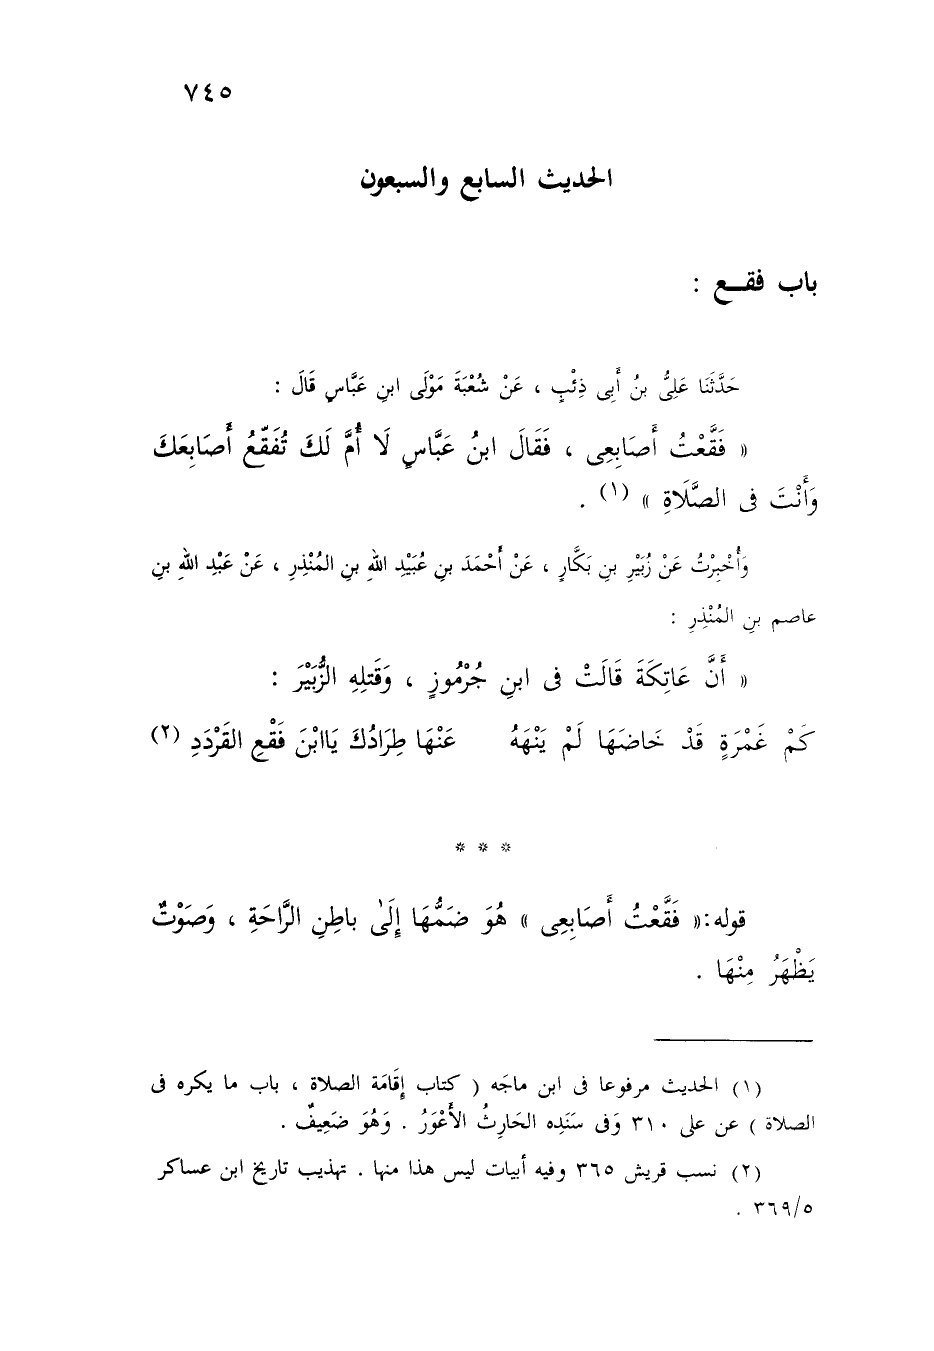 ٧٤٥
الحديث السابع والسبعون
باب فقــع :
حَدَّثَنَا عَلِىُّ بنُ أَبِى ذِئْبٍ ، عَنْ شُعْبَةَ مَوْلَى ابنِ عَبَّاسٍ قَالَ :
« فَقَّعْتُ أَصَابِعِى ، فَقَالَ ابنُ عَبَّاسٍ لَا أُمَّ لَكَ تُفَقّعُ أَصَابِعَكَ
وَأَنْتَ فى الصَّلَاةِ » (١) .
وَأُخْبِرْتُ عَنْ زُبَيْرِ بنِ بَكَّارٍ ، عَنْ أَحْمَدَ بنِ عُبَيْدِ اللهِ بنِ المُنْذِرِ ، عَنْ عَبْدِ اللهِ بنِ
عاصم بنِ المُنْذِرِ :
« أَنَّ عَاتِكَةَ قَالَتْ فى ابنِ جُرْمُوزٍ ، وَقَتلِهِ الزُّبَيْرَ :
كَمْ غَمْرَةٍ قَدْ خَاضَهَا لَمْ يَنْهَهُ عَنْهَا طِرَادُكَ يَاابْنَ فَقْعِ القَرْدَدِ (٢)
* * *
قوله: « فَقَّعْتُ أَصَابِعِى » هُوَ ضَمُّهَا إِلَىٰ باطِنِ الرَّاحَةِ ، وَصَوْتٌ
يَظْهَرُ مِنْهَا .
(١) الحديث مرفوعا فى ابن ماجَه ( كتاب إِقَامَة الصلاة ، باب ما يكره فى
الصلاة ) عن على ٣١٠ وَفى سَنَدِه الحَارِثُ الأَعْوَرُ . وَهُوَ ضَعِيفٌ .
(٢) نسب قريش ٣٦٥ وفيه أبيات ليس هذا منها . تهذيب تاريخ ابن عساكر
٣٦٩/٥ .